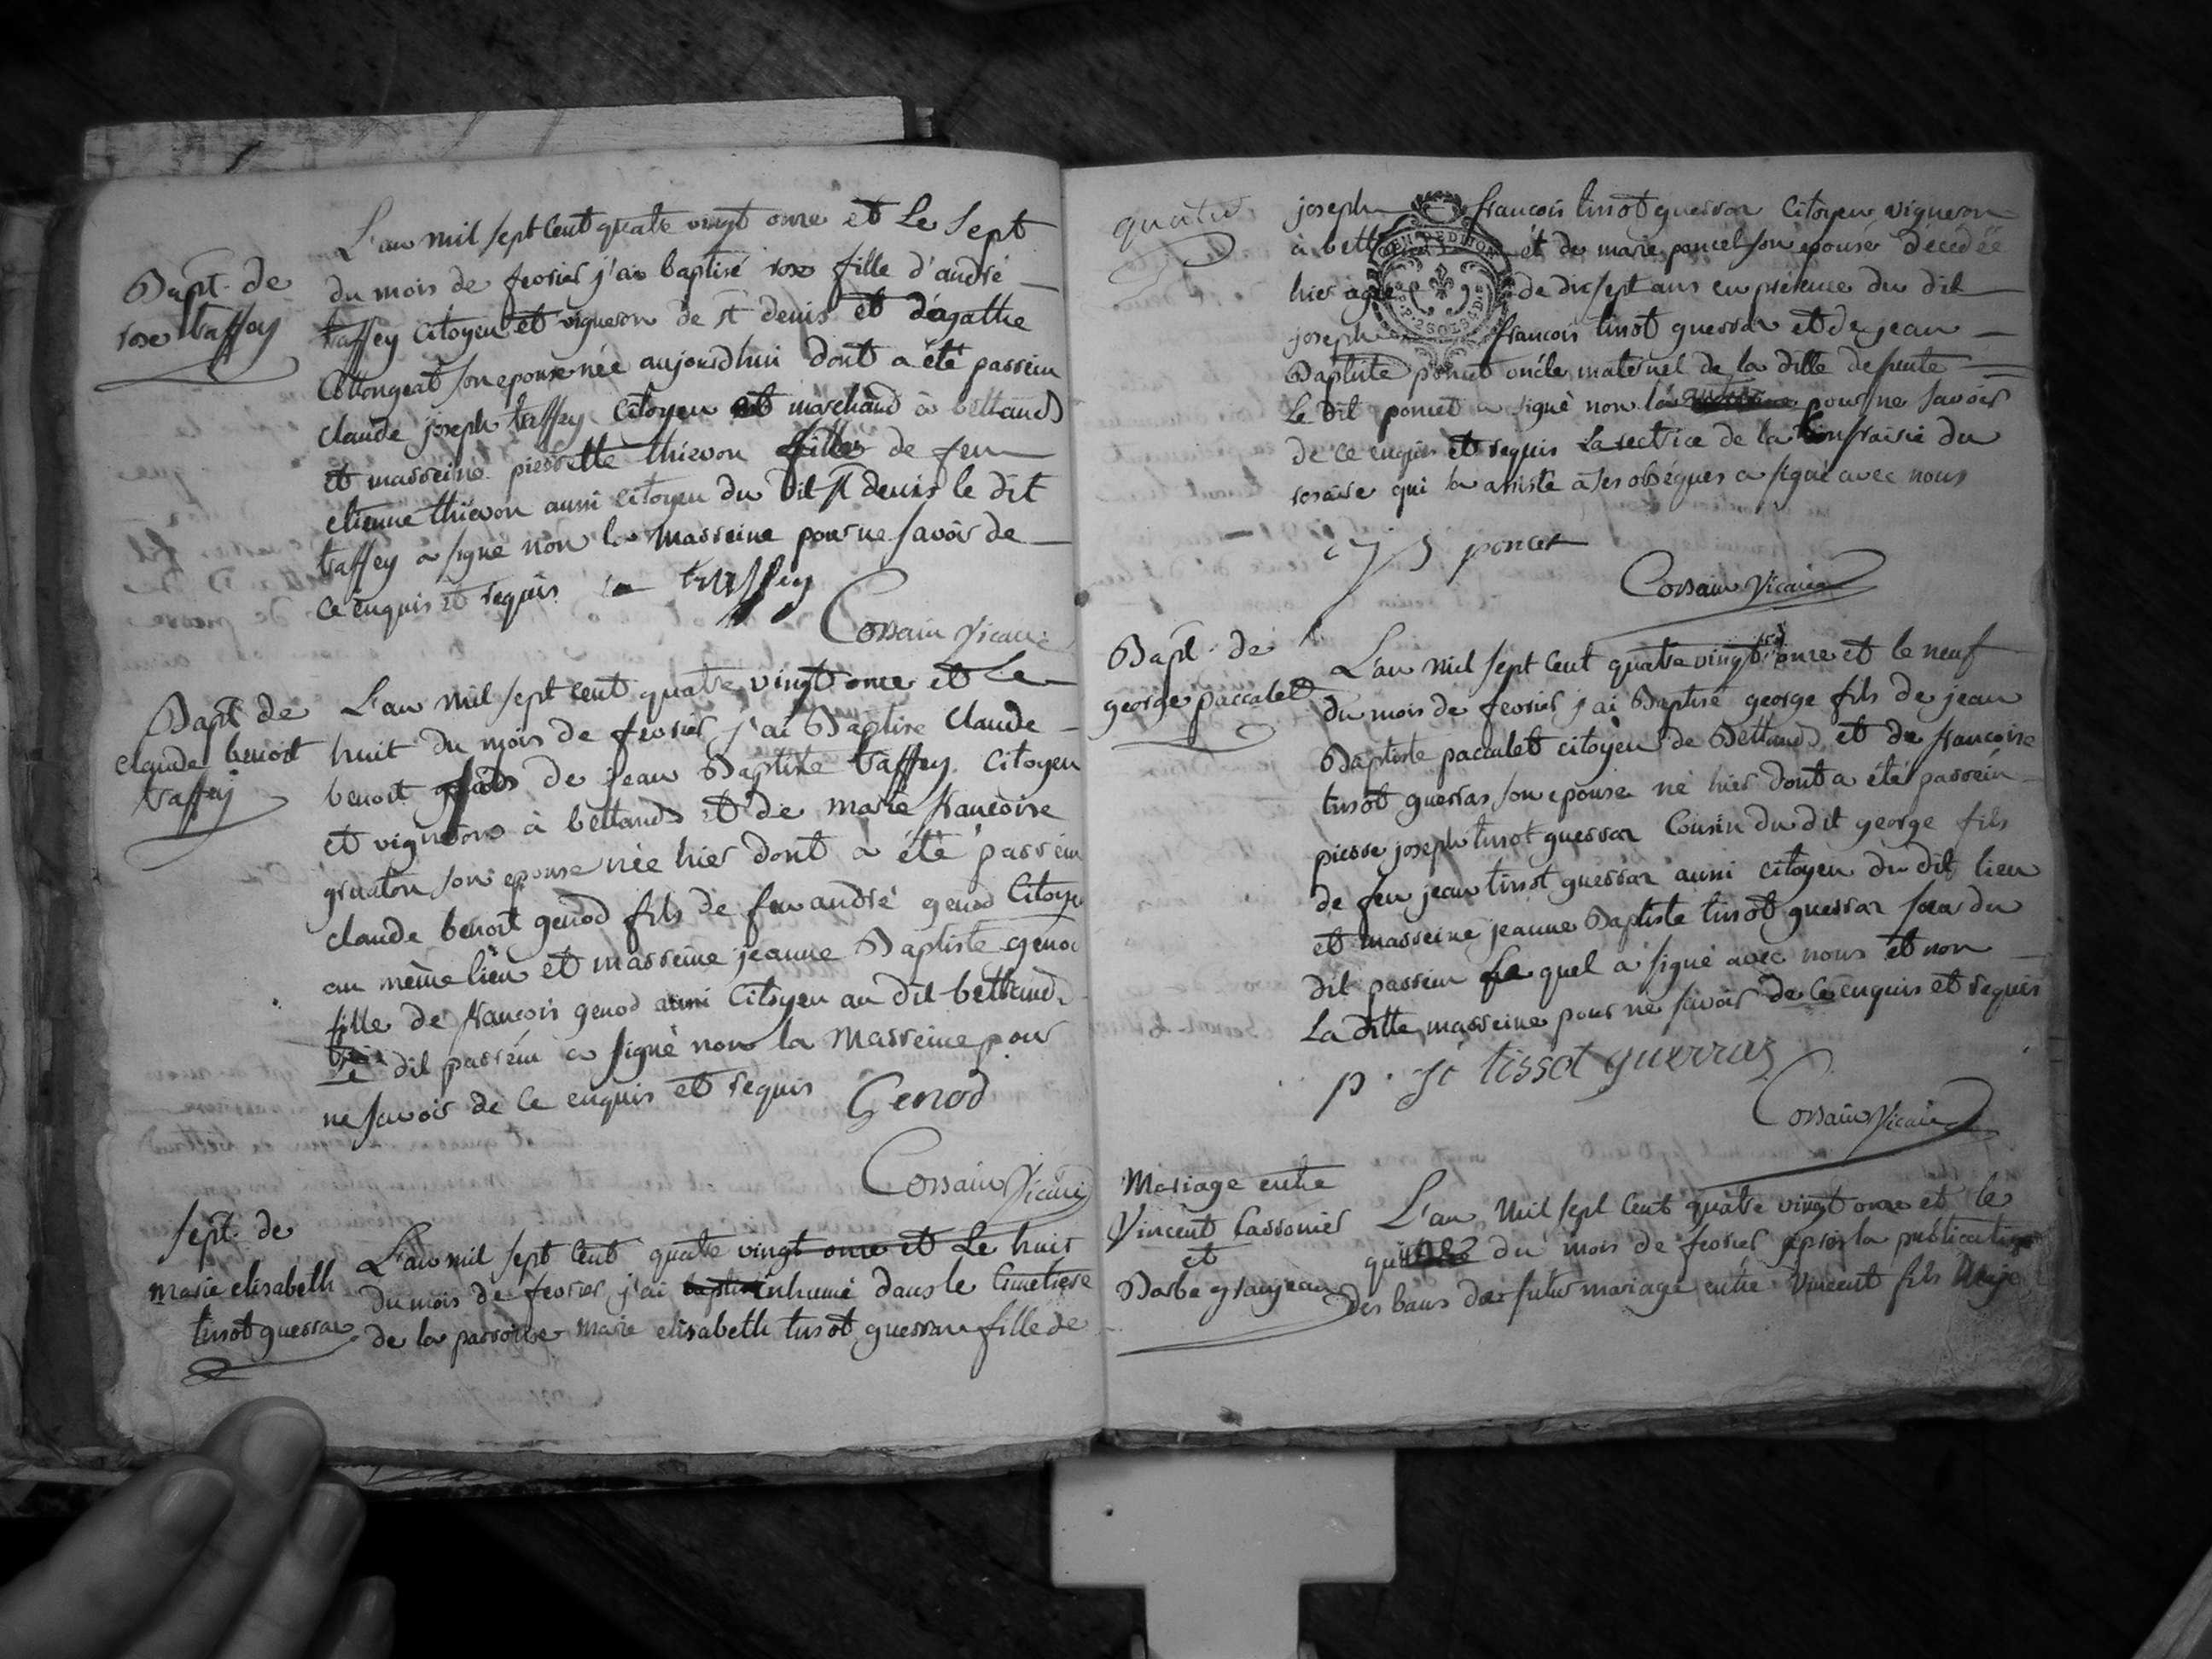 Bapt. de
rose traffey
L'an mil sept cent quatre vingt onze et le sept
du mois de fevrier j'ai baptisé rose fille d'andré
traffey citoyen et vigneron de st denis et d'agathe
Collongeat son epouse née aujourdhui dont a été passein
claude joseph traffey citoyen et marchand à bettands
et masseine pierrette thievon fille de feu
etienne thievon aussi citoyen du dit st denis le dit
traffey a signé non la masseine pour ne savoir de
ce enquis et requis traffey
Cossain vicaire
Bapt de
claude benoit
traffey
L'an mil sept cent quatre vingt onze et le
huit du mois de fevrier j'ai Baptise Claude
benoit fils de jean Baptiste traffey Citoyen
et vigneron à bettands et de marie francoise
gruaton son epouse née hier dont a été passein
claude benoit genod fils de feu andré genod Citoyen
au même lieu et masseine jeanne Baptiste genod
fille de francois genod aussi Citoyen au dit bettands
le dit passein a signé non la masseine pour
ne savoir de ce enquis et requis Genod
Cossain vicaire
sept. de
marie elisabeth
tissot guerraz
L'an mil sept cent quatre vingt onze et Le huit
du mois de fevrier j'ai inhumé dans le Cimetiere
de la parroisse marie elisabeth tissot guerraz fille de
quatre
joseph francois tissot guerraz Citoyen vigneron
à bettands et de marie poncet son épouse décédée
hier agée de dix sept ans en présence du dit
joseph francois tissot guerraz et de jean
Baptiste poncet oncle maternel de la ditte defunte
Le dit poncet a signé non la pour ne savoir
de ce enquis et requis La rectrice de la Confrairie du
rosaire qui a assisté à ses obséques a signé avec nous
j B poncet
Cossain Vicaire
Bapt. de
george paccalet
L'an mil sept cent quatre vingt onze et le neuf
du mois de fevrier j'ai Baptisé george fils de jean
Baptiste paccalet citoyen de Bettands et de francoise
tissot guerraz son epouse né hier dont a été passein
pierre joseph tissot guerraz Cousin du dit george fils
de feu jean tissot guerraz aussi citoyen du dit lieu
et masseine jeanne Baptiste tissot guerraz soeur du
dit passein le quel a signé avec nous et non
La ditte masseine pour ne savoir de ce enquis et requis
p. jh tissot guerraz
Cossain Vicaire
Mariage entre
Vincent Cassonier
et
Barbe granjean
L'an Mil sept cent quatre vingt onze et le
quinze du mois de fevrier après la publication
des bans de futur mariage entre Vincent fils